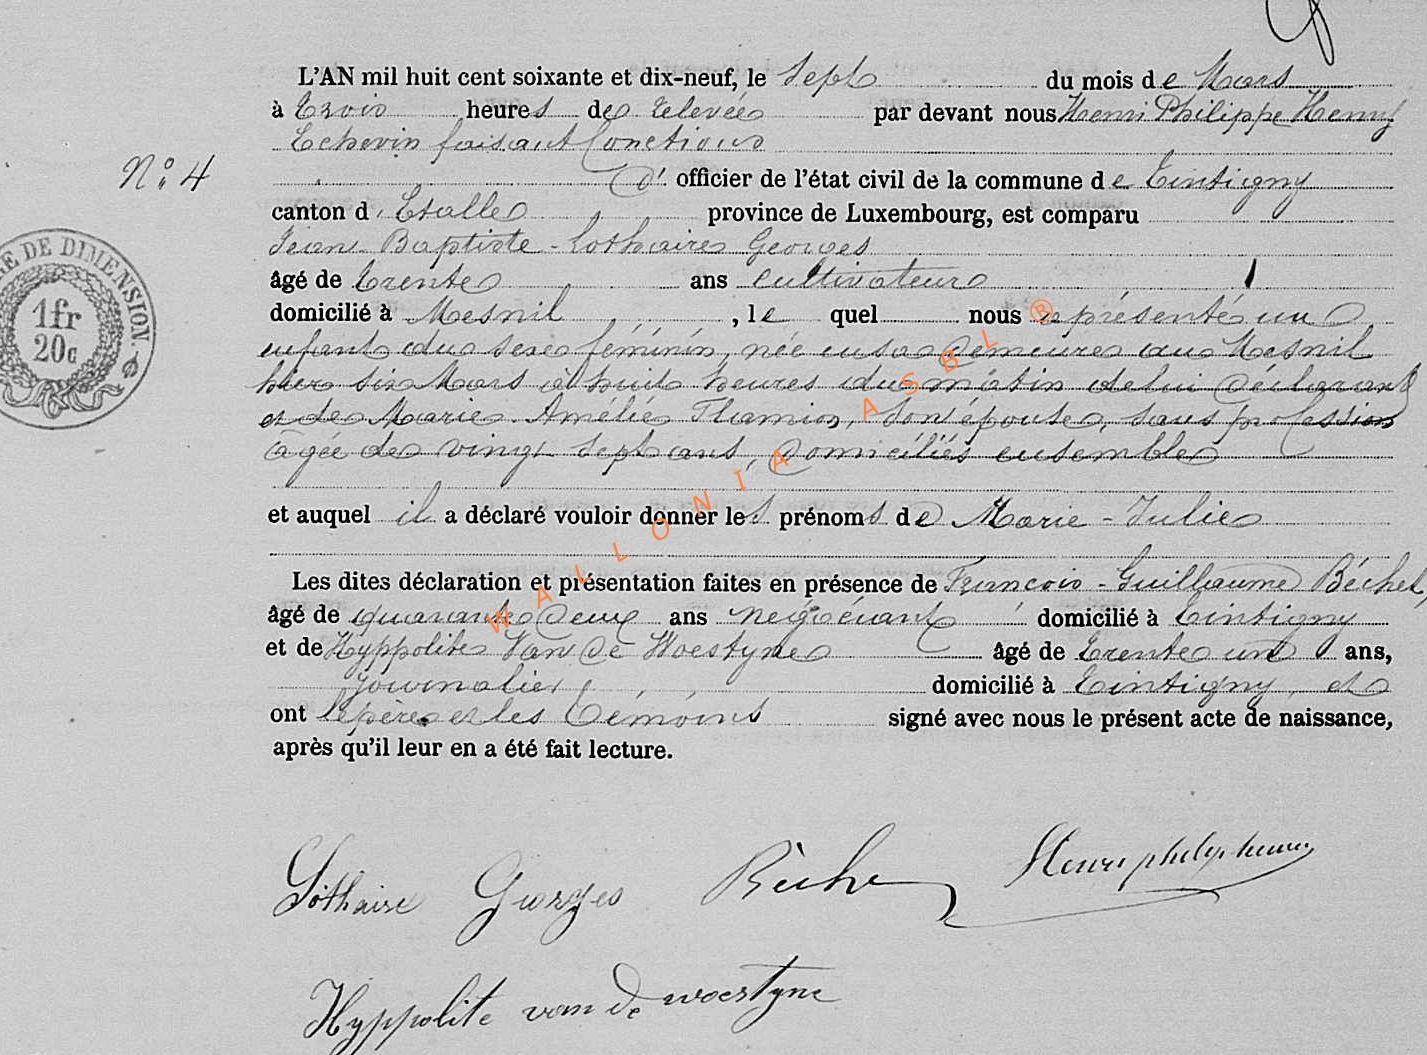 L'AN mil huit cent soixante et dix-neuf, le Sept du mois de Mars
à trois heures de relevée par devant nous Henri Philippe Henry
Echevin faisant fonctions
N° 4
d' officier de l'état civil de la commune de Tintigny
canton d'Etalle province de Luxembourg, est comparu
Jean Baptiste - Lothaire Georges
âgé de trente ans cultivateur
domicilié à Mesnil, le quel nous a présenté un
enfant du sexe féminin, née en sa demeure au Mesnil
hier six Mars à huit heures du matin de lui déclarant
et de Marie Amélie Thamion, son épouse, sans profession
âgée de vingt sept ans, domiciliés ensemble
et auquel il a déclaré vouloir donner les prénoms de Marie - Julie
Les dites déclaration et présentation faites en présence de François - Guillaume Béchet,
âgé de quarante deux ans négociant domicilié à Tintigny
et de Hyppolite Van de Woestyne âgé de trente un ans,
journalier, domicilié à Tintigny, et
ont le père et les témoins signé avec nous le présent acte de naissance,
après qu'il leur en a été fait lecture.
RE DE DIMENSION
1fr
20c
WALLONIA ASBL ®
Lothaire Georges
Hyppolite van de woestyne